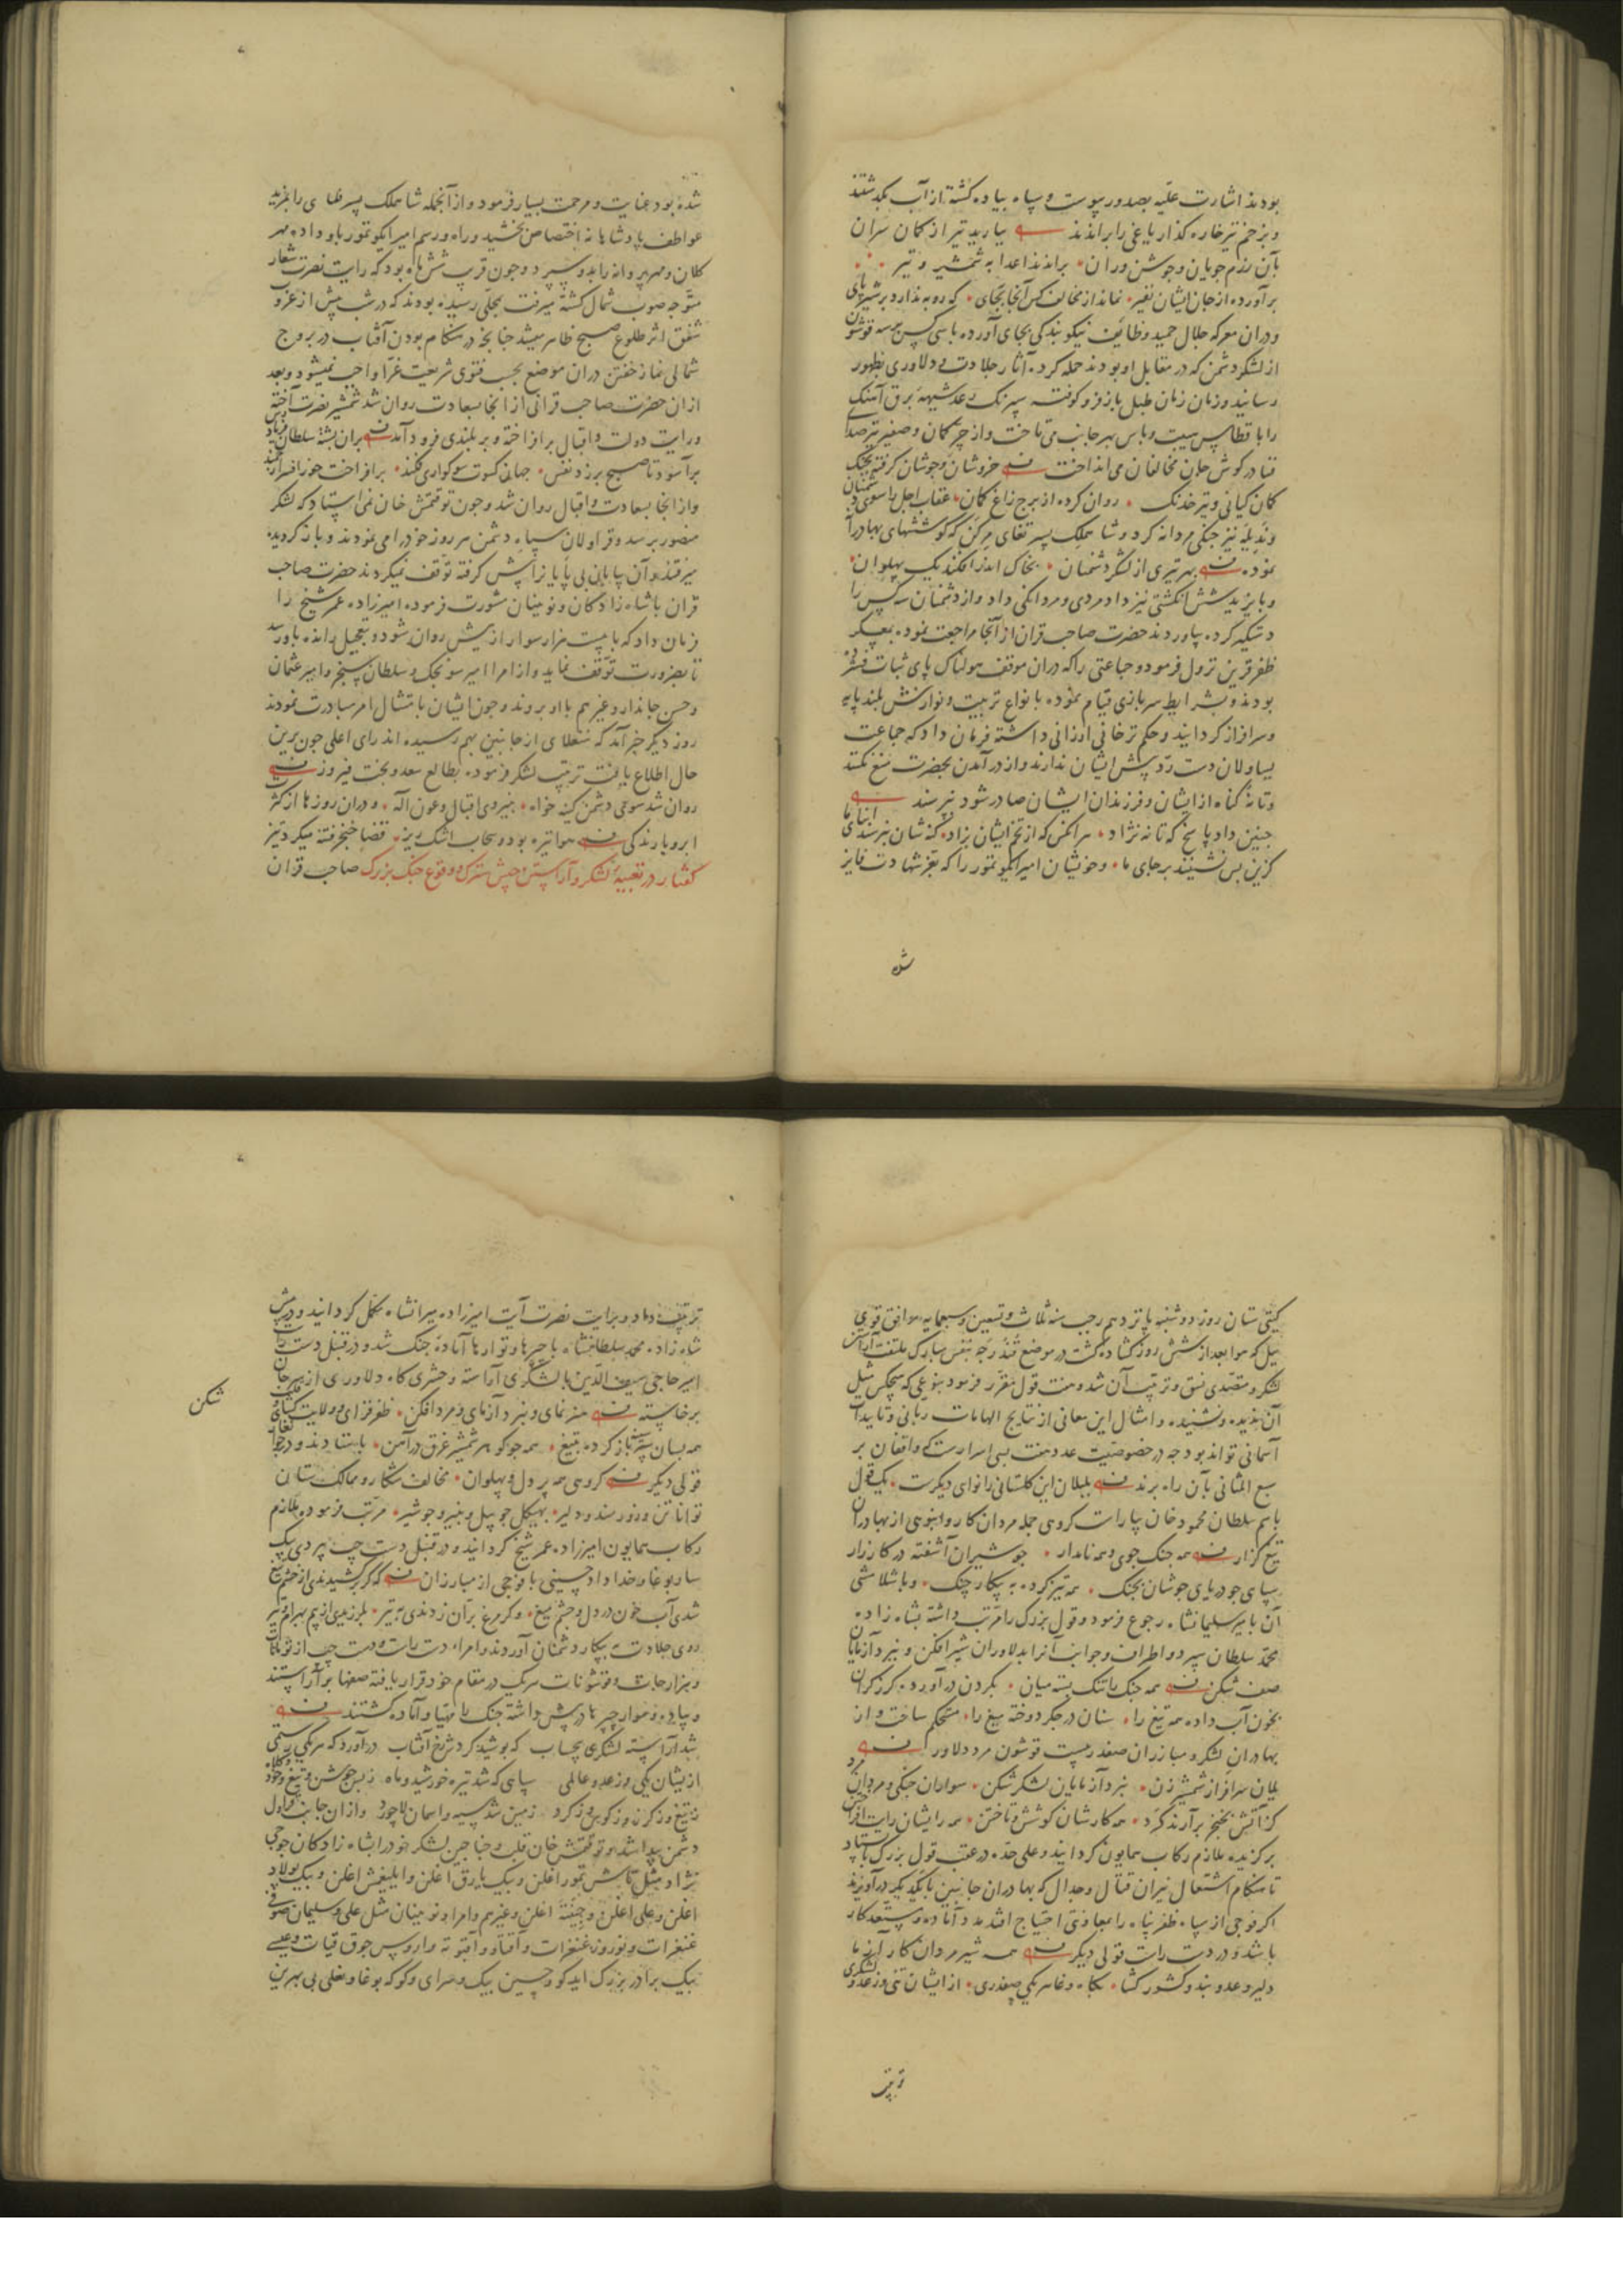 بودند اشارت علیّه بصدور پیوست و سپاه پیاده گشته از آب بگذشتند
و بزخم تیر خاره گذار یاغی را براندند ببارید تیر از کمان سران
بآن رزم جویان و جوشن وران براندند اعدا به شمشیر و تیر
برآورده از جان ایشان نفیر نماند از مخالف کس آنجا بجای که روبه ندارد بر شیر پای
و دران معرکه جلال حمید وظایف نیکو بندگی بجای آورده با سی کس بر سه قوشون
از لشکر دشمن که در مقابل او بودند حمله کرد و آثار جلادت و دلاوری بظهور
رسانید و زمان زمان طبل باز فرو کوفته سپرنگ رعد شیهه برق آهنگ
را با قطاس هیبت و باس بهر جانب می تاخت و از چرخ کمان و صفیر تیر صدای
فنا در گوش جان مخالفان می انداخت خروشان و جوشان گرفته بچنگ
کمان کیانی و تیر خدنک روان کرده از برج زاغ کمان عقاب اجل را سوی دشمنان
و نذیله نیز جنگی مردانه کرد و شاه ملک پسر تغای مرکن که کوششهای بهادرانه
نموده بهر تیری از لشکر دشمنان بخاک اندر افکند یک پهلوان
و بایزید شش انگشتی نیز داد مردی و مردانگی داد و از دشمنان سه کس را
دستگیر کرده بیاوردند حضرت صاحب قران از آنجا مراجعت نموده بمعسکر
ظفر قرین نزول فرمود و جماعتی را که دران موقف هولناک پای ثبات فشرده
بودند و بشرایط سربازی قیام نموده بانواع تربیت و نوازش بلند پایه
و سرافراز گردانید و حکم ترخانی ارزانی داشته فرمان داد که جماعت
یساولان دست رد پیش ایشان ندارند و از درآمدن بحضرت منع نکنند
و تا نه گناه از ایشان و فرزندان ایشان صادر شود نپرسند
چنین داد پاسخ که تا نه نژاد هر آنکس که از تخم ایشان بزاد گنه شان نپرسند ابنای ما
کزین پس نشینند بر جای ما و خویشان امیر ایکو تمور را که بعز شهادت فایز
شده
شده بود عنایت و مرحمت بسیار فرمود و از آنجمله شاه ملک پسر طغای را بمزید
عواطف پادشاهانه اختصاص بخشید و راه و رسم امیر ایکو تمور باو داد و مهر
کلان و مهر پروانه را بدو سپرد و چون قرب شش ماه بود که رایت نصرت شعار
متوجه صوب شمال گشته میرفت بمحلی رسیده بودند که در شب پیش از غروب
شفق اثر طلوع صبح ظاهر میشد چنانچه در هنگام بودن آفتاب در بروج
شمالی نماز خفتن دران موضع بحسب فتوی شریعت غرّا واجب نمیشود و بعد
ازان حضرت صاحب قرانی از آنجا بسعادت روان شد شمشیر نصرت آخته
و رایت دولت و اقبال برافراخته و بر بلندی فرود آمد بران پشته سلطان
برآسود تا صبح برزد نفس جهانی کسوت سوکواری فکند برافراخت خور افسر ارجمند
و از آنجا بسعادت و اقبال روان شد و چون توقتمش خان نمی ایستاد که لشکر
منصور برسد و قراولان سپاه دشمن هر روز خود را می نمودند و باز گردیده
میرفتند و آن بیابان بی پایان را پیش گرفته توقف نمیکردند حضرت صاحب
قران با شاه زادگان و نویینان مشورت فرموده امیرزاده عمر شیخ را
فرمان داد که با بیست هزار سوار از پیش روان شود و بتعجیل رانده باو رسد
تا بضرورت توقف نماید و از امرا امیر سونجک و سلطان سنجر و امیر عثمان
و حسن جاندار و غیرهم با او بروند و چون ایشان بامتثال امر مبادرت نمودند
روز دیگر خبر آمد که منقلای از جانبین بهم رسیده اند رای اعلی چون برین
حال اطلاع یافت ترتیب لشکر فرموده بطالع سعد و بخت فیروز
روان شد سوی دشمن کینه خواه بنیروی اقبال و عون اله و دران روزها از کثرت
ابر و بارندگی هوا تیره بود و سحاب اشک ریز قضا خنجر فتنه میکرد تیز
گفتار در تعبیه لشکر و آراستن جیش سترک و وقوع جنک بزرک صاحب قران
گیتی ستان روز دوشنبه پانزدهم رجب سنه ثلث و تسعین و سبعمایه موافق قوی
ییل که هوا بعد از شش روز گشاده گشت در موضع قندزجه بنفس مبارک ملتفت آرایش
لشکر و متصدی نسق و ترتیب آن شد و هفت قول مقرر فرمود بنوعی که هیچکس مثل
آن ندیده و نشنیده و امثال این معانی از نتایج الهامات ربانی و تاییدات
آسمانی تواند بود چه در خصوصیت عدد هفت بسی اسرارست که واقفان بر
سبع المثانی بآن راه برند بلبلان این گلستان را نوای دیگرست یک قول
باسم سلطان محمود خان بیاراست گروهی جمله مردان کار و انبوهی از بهادران
تیغ گزار همه جنگ جوی و همه نامدار چو شیران آشفته در کارزار
سپاهی چو دریای جوشان بجنگ همه تیز کرده به پیکار چنگ و باشلامشی
آن بامیر سلیمانشاه رجوع فرمود و قول بزرک را مرتب داشته بشاه زاده
محمد سلطان سپرد و اطراف و جوانب آنرا بدلاوران شیر افکن و نبرد آزمایان
صف شکن همه جنگ را تنگ بسته میان بگردن درآورده گرز گران
بخون آب داده همه تیغ را سنان در جگر دوخته میغ را مستحکم ساخت و از
بهادران لشکر و مبارزان صفدر بیست قوشون مرد دلاور
یلان سرافراز شمشیر زن نبرد آزمایان لشکر شکن سواران جنگی و مردان مرد
کز آتش بخنجر برآرند گرد همه کارشان کوشش و تاختن همه رایشان رایت افراختن
برگزیده ملازم رکاب همایون گردانید و علی حده در عقب قول بزرک بایستاد
تا هنگام اشتعال نیران قتال و جدال که بهادران جانبین با یکدیگر درآویزند
اگر فوجی از سپاه ظفر پناه را بمعاونتی احتیاج افتد مدد آماده و مستعد کار
باشد و در دست راست قولی دیگر همه شیر مردان کارآزما
دلیر و عدو بند و کشور گشا بگاه وغا هر یکی صفدری از ایشان تنی و ز عدو لشکری
ترتیب
ترتیب داد و برایت نصرت آیت امیرزاده میرانشاه مکمل گردانید و در پیش
شاه زاده محمد سلطانشاه با چپرها و تورها آماده جنگ شد و در قنبل دست راست
امیر حاجی سیف الدین با لشکری آراسته و حشری گاه دلاوری از سر جان
برخاسته هنرنمای و نبرد آزمای و مرد افکن ظفر فزای و ولایت گشای و قلب
شکن
همه بسان سپر باز کرده تیغ همه چو گوهر شمشیر غرق در آهن بایستادند و در جوانغار
قولی دیگر گروهی همه پر دل و پهلوان مخالف شکار و ممالک ستان
توانا تن و زورمند و دلیر بهیکل چو پیل و بنیرو چو شیر مرتب فرموده ملازم
رکاب همایون امیرزاده عمر شیخ گردانید و در قنبل دست چپ بیردی بیک
ساربوغا و خداداد حسینی با فوجی از مبارزان که گر برکشیدندی از خشم تیغ
شدی آب خون در دل و چشم میغ و گر مرغ بران زدندی به تیر بلرزیدی از بیم بهرام و تیر
روی جلادت به پیکار دشمنان آوردند و امراء دست راست و دست چپ از تومانات
و هزارجات و قوشونات هر یک در مقام خود قرار یافته صفها برآراستند
و پیاده و سوار چپرها در پیش داشته جنگ را مهیا و آماده گشتند
شد آراسته لشکری بی حساب که پوشید گردش رخ آفتاب درآورد که هر یکی رستمی
از ایشان یکی وز عدو عالمی سپاهی که شد تیره خورشید و ماه ز بس جوشن و تیغ و خود و کلاه
ز تیغ و ز گرز و ز کوس و ز گرد زمین شد سیه و آسمان لاجورد و ازان جانب قراول
دشمن پیدا شد و توقتمش خان قلب و جناحین لشکر خود را بشاه زادگان جوجی
نژاد مثل تاش تمور اغلن و بیک یارق اغلن و ایلیغمش اغلن و بیک پولاد
اغلن و علی اغلن و جنته اغلن و غیرهم و امراء و نوینان مثل علی و سلیمان صوفی
قنغرات و نوروز قنغرات و آقتاو و آقبوته و اروس جوق قیات و عیسی
بیک برادر بزرک ایدکو و حسین بیک و سرای و کوکه بوغا و یغلی بی بهرین